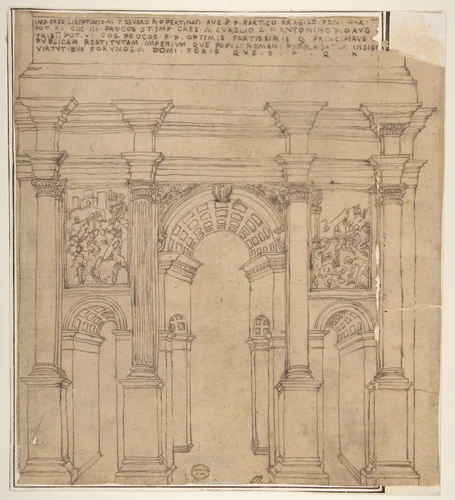 IMP CAES LVCI SEPTIMIO M F SEVERO PIO PERTINACI AVG P P PARTICO ARABICO PON
POT XI COS III PROCOS ET IMP CAES M AVRELIO L F ANTONINO AVG
TRIB POT VI COS PROCOS P P OPTIMIS FORTISSIMIS Q PRINCIPIBVS
PVBLICAM RESTITVTAM IMPERIVM QVE POPVLI ROMANI PROPAGATVM INSIG
VIRTVTIBVS EORVNDEM DOMI FORIS QVE S P Q R